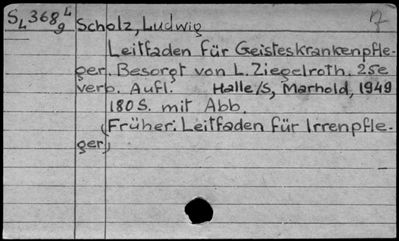 S4 368 4 g Scholz, Ludwig
Leitfaden für Geisteskrankenpfle-
ger. Besorgt von L. Ziegelroth. 25e
verb. Aufl. Halle/S, Marhold, 1949
180 S. mit Abb.
(Früher: Leitfaden für Irrenpfle-
ger)